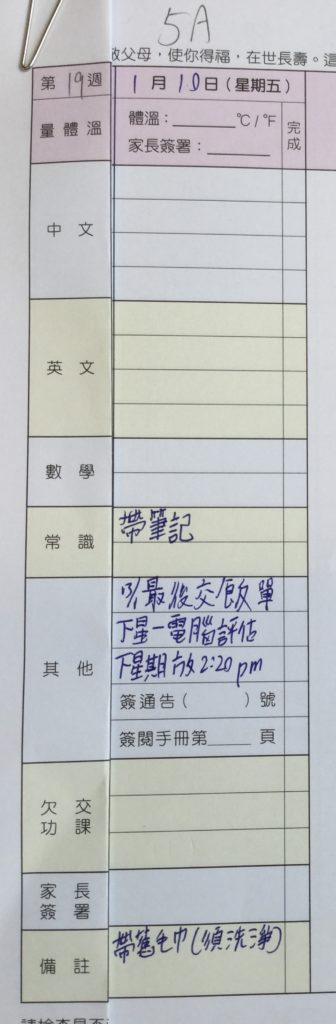 5A
敬父母，使你得福，在世長壽。這
第19週 1月10日(星期五)
量體溫 體溫：______°C/°F 完成
家長簽署：______
中文
英文
數學
常識 帶筆記
最後交飯單
其他 下星一電腦評估
下星期六放2:20pm
簽通告( )號
簽閱手冊第____頁
欠交功課
家長簽署
備註 帶舊毛巾(須洗淨)